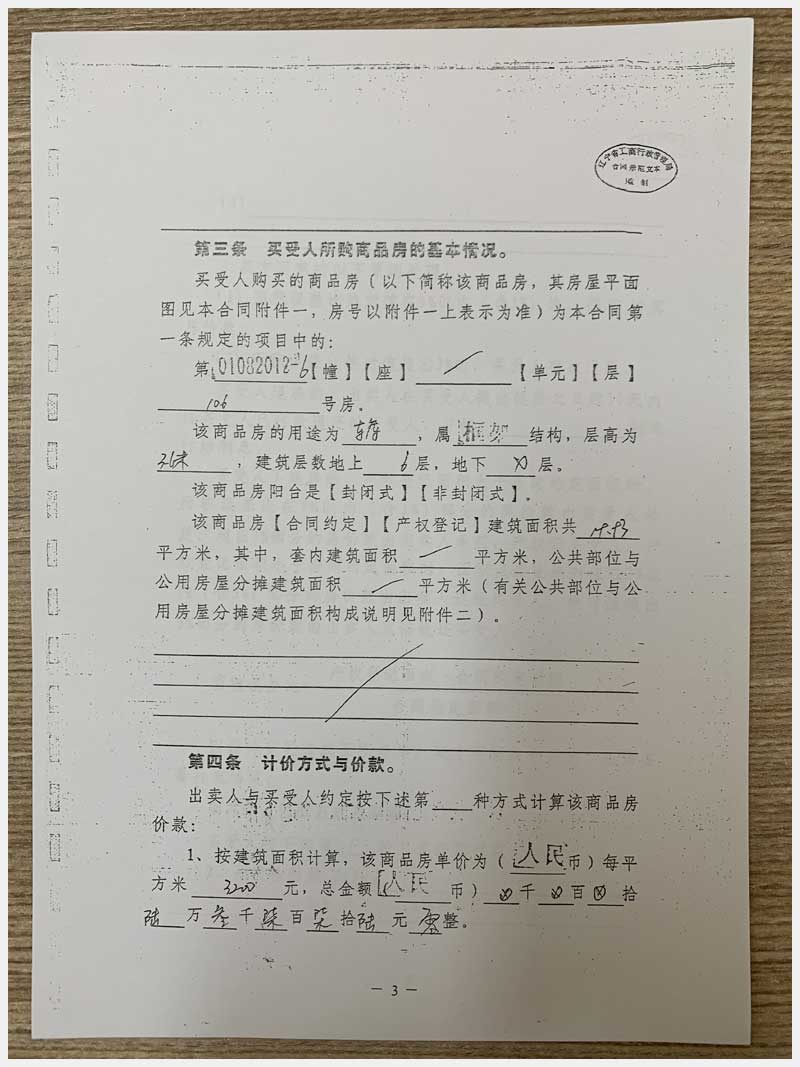 辽宁省工商行政管理局
合同示范文本
监制
第三条 买受人所购商品房的基本情况。
买受人购买的商品房(以下简称该商品房,其房屋平面
图见本合同附件一,房号以附件一上表示为准)为本合同第
一条规定的项目中的:
第01082012-6【幢】【座】【单元】【层】
106号房。
该商品房的用途为,属框架结构,层高为
,建筑层数地上6层,地下层。
该商品房阳台是【封闭式】【非封闭式】。
该商品房【合同约定】【产权登记】建筑面积共
平方米,其中,套内建筑面积平方米,公共部位与
公用房屋分摊建筑面积平方米(有关公共部位与公
用房屋分摊建筑面积构成说明见附件二)。
第四条 计价方式与价款。
出卖人与买受人约定按下述第种方式计算该商品房
价款:
1、按建筑面积计算,该商品房单价为(人民币)每平
方米3200元,总金额(人民币)千百拾
陆万叁千柒百柒拾陆元零整。
— 3 —